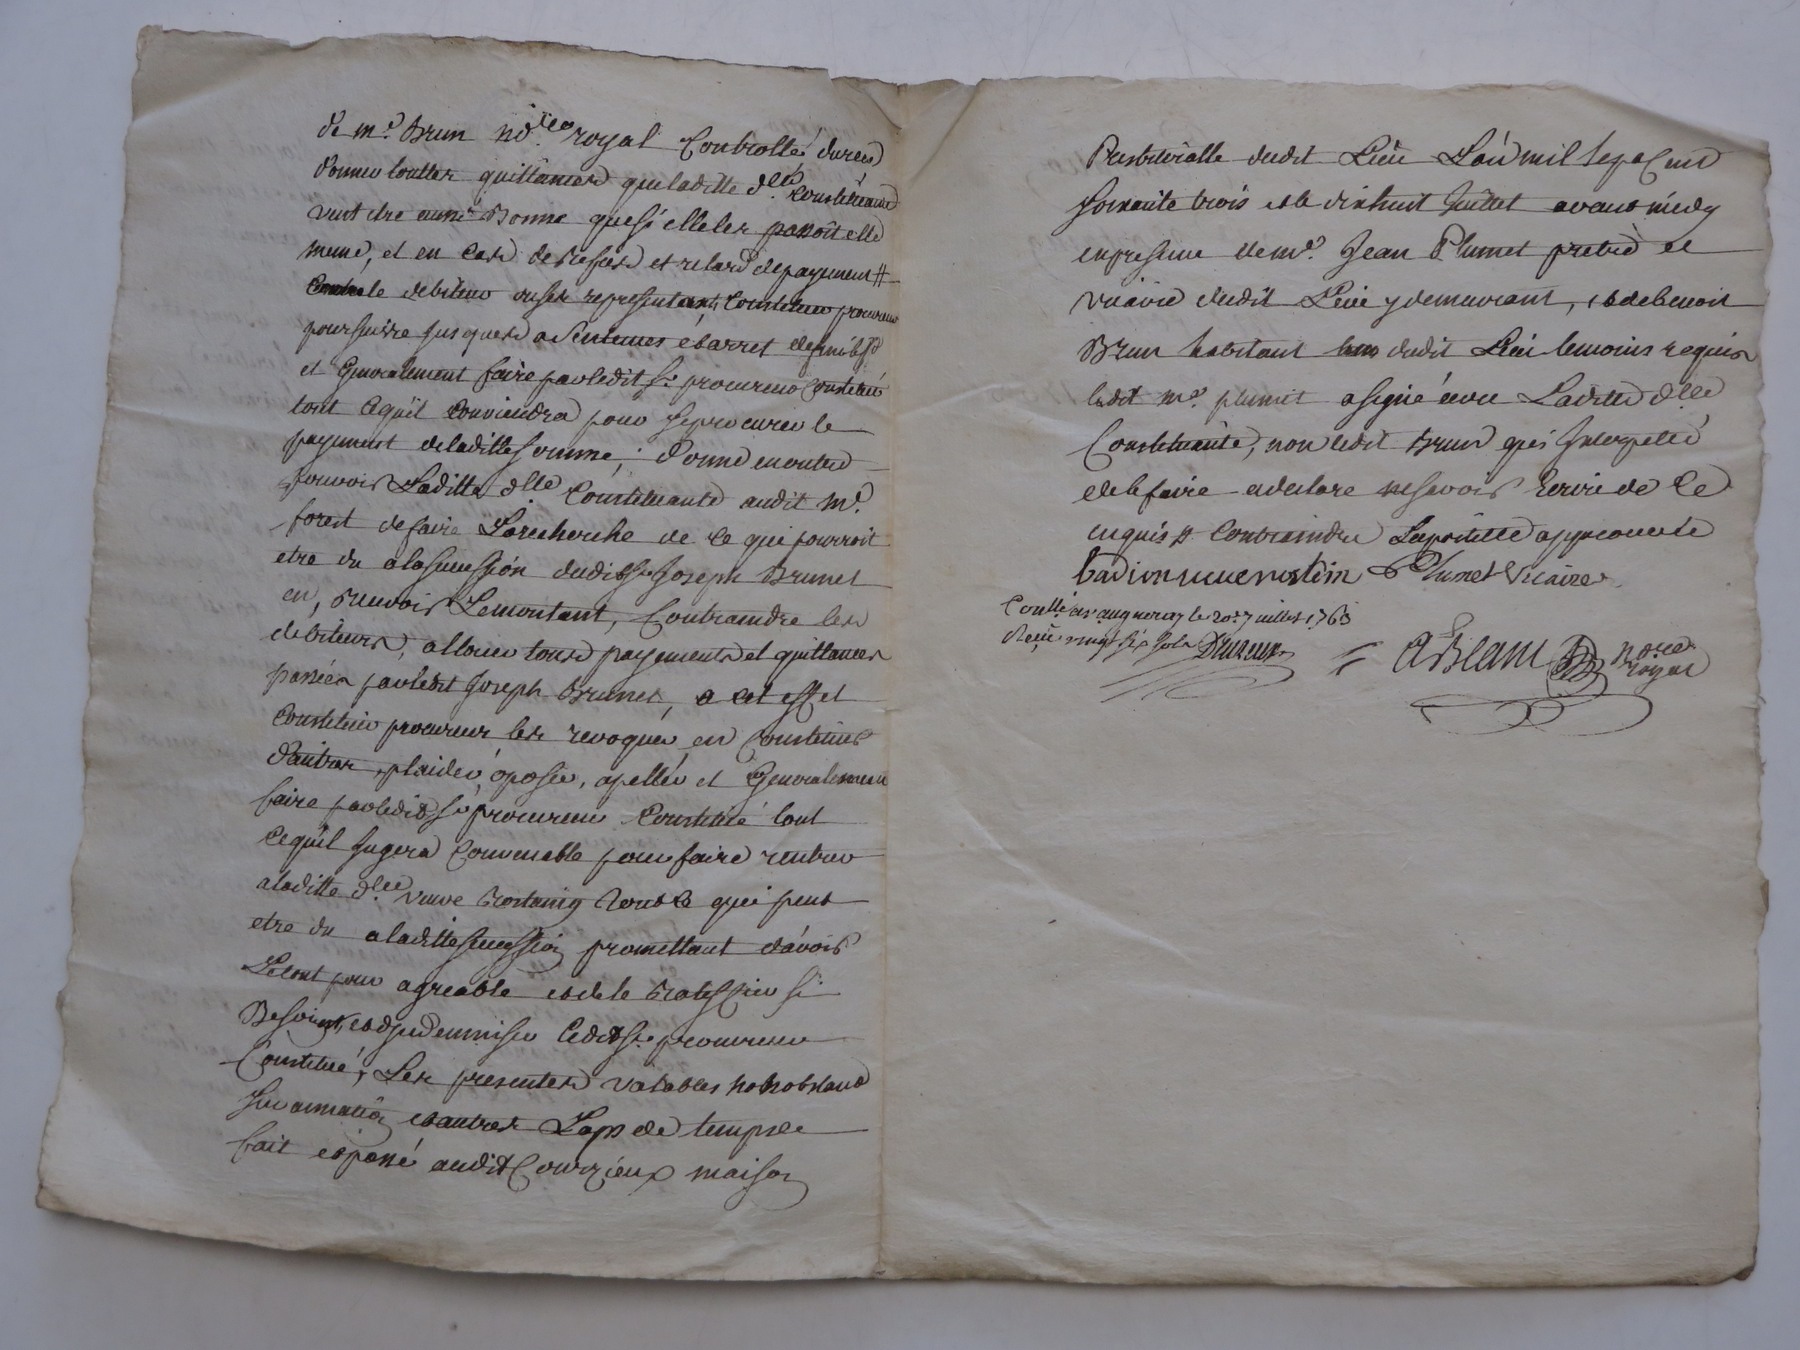 de m.e Brun no.re royal Controllé du reu
donner touttes quittances que laditte d.lle Constituante
veut etre aussi Bonne que si elle les passoit elle
meme, et en Cas de Refus et retard de payement #
le debiteur ou ses representants, Constituer procureur
poursuivre jusques a Sentences et arret definitifs
et Generalement faire par ledit Sr procureur Constitué
tout Ce quil Conviendra pour se procurer le
payement de laditte somme; donne en outre
pouvoir Laditte d.lle Constituante audit m.e
forest de faire La recherche de Ce qui pourroit
etre du a la succession dudit Sr Joseph Brunet
en, recevoir Le montant, Contraindre les
debiteurs, allouer tous payements et quittances
passées par ledit Joseph Brunet, a cet effet
Constituer procureur les revoquer en Constituer
d'autres, plaider, oposer, apeller et Generalement
faire par ledit Sr procureur Constitué tout
Ce quil Jugera Convenable pour faire rentrer
a laditte d.lle veuve Rostaing tout Ce qui peut
etre du a laditte succession promettant d'avoir
Le tout pour agreable et de le Ratiffier si
Besoin est, et d'indemniser Ledit Sr procureur
Constitué, Les presentes valables nonobstant
Surannation et autres Laps de temps
fait et passé audit Courzieux maison
Presbiteralle dudit Lieu L'an mil sept Cent
soixante trois et le dixhuit Juillet avant midy
en presence de m.e Jean Plumet pretre et
vicaire dudit Lieu y demeurant, et de benoit
Brun habitant dudit Lieu temoins requis
ledit m.e plumet a signé avec Laditte d.lle
Constituante, non ledit Brun qui Interpellé
de le faire a declaré ne savoir Ecrire de Ce
enquis # Contraindre Lapostille approuvée
badion veuve rostein Plumet Vicaire
Con.llé le 20e juillet 1763
Reçu vingt six sols
not.re
royal